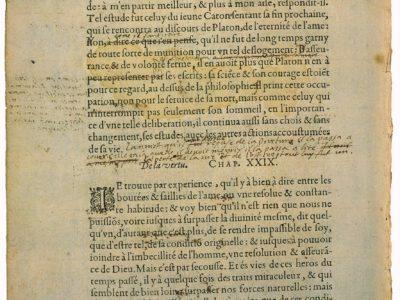 de: à m'en partir meilleur, & plus à mon aise, respondit-il.
Tel estude fut celuy du ieune Caton sentant sa fin prochaine,
qui se rencontra au discours de Platon, de l'eternité de l'ame:
Non, à dire ce que i'en pense, qu'il ne fut de long temps garny
de toute sorte de munition pour vn tel deslogement: D'asseu-
rance & de volonté ferme, il en auoit plus que Platon n'en à
peu representer par ses escrits: sa sciēce & son courage estoiēt
pour ce regard, au dessus de la philosophie: Il print cette occu-
pation, non pour le seruice de sa mort, mais comme celuy qui
n'interrompit pas seulement son sommeil, en l'importan-
ce d'vne telle deliberation, il continua aussi sans chois & sans
changement, ses estudes auec les autres actions accoustumées
de sa vie.
De la vertu. CHAP. XXIX.
IE trouue par experience, qu'il y à bien à dire entre les
boutées & saillies de l'ame, ou vne resolue & constan-
te habitude: & voy bien qu'il n'est rien que nous ne
puissiōs, voire iusques à surpasser la diuinité mesme, dit quel-
qu'vn, d'autant que c'est plus, de se rendre impassible de soy,
que d'estre tel, de sa conditiō originelle: & iusques à pouuoir
ioindre à l'imbecillité de l'homme, vne resolution & asseuran-
ce de Dieu. Mais c'est par secousse. Et és vies de ces heros du
temps passé, il y a quelque fois des traits miraculeux, & qui
semblent de bien loing surpasser nos forces naturelles: mais